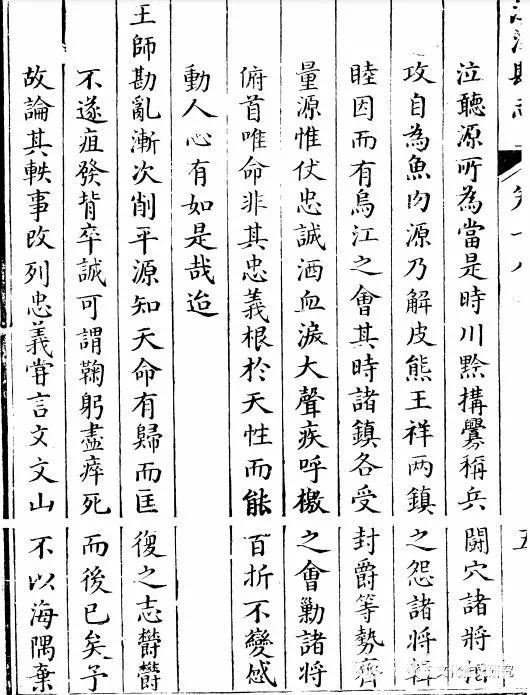 縣志 卷十八 五
泣聽源所為當是時川黔搆釁稱兵鬭穴諸將
攻自為魚肉源乃解皮熊王祥两鎮之怨諸將輯
睦因而有烏江之會其時諸鎮各受封爵等勢齊
量源惟仗忠誠洒血淚大聲疾呼檄之會勦諸將
俯首唯命非其忠義根於天性而能百折不變感
動人心有如是哉迨
王師勘亂漸次削平源知天命有歸而匡復之志鬱鬱
不遂疽發背卒誠可謂鞠躬盡瘁死而後已矣予
故論其軼事改列忠義甞言文文山不以海隅棄